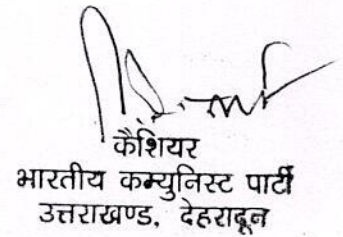 कैशियर
भारतीय कम्युनिस्ट पार्टी
उत्तराखण्ड, देहरादून